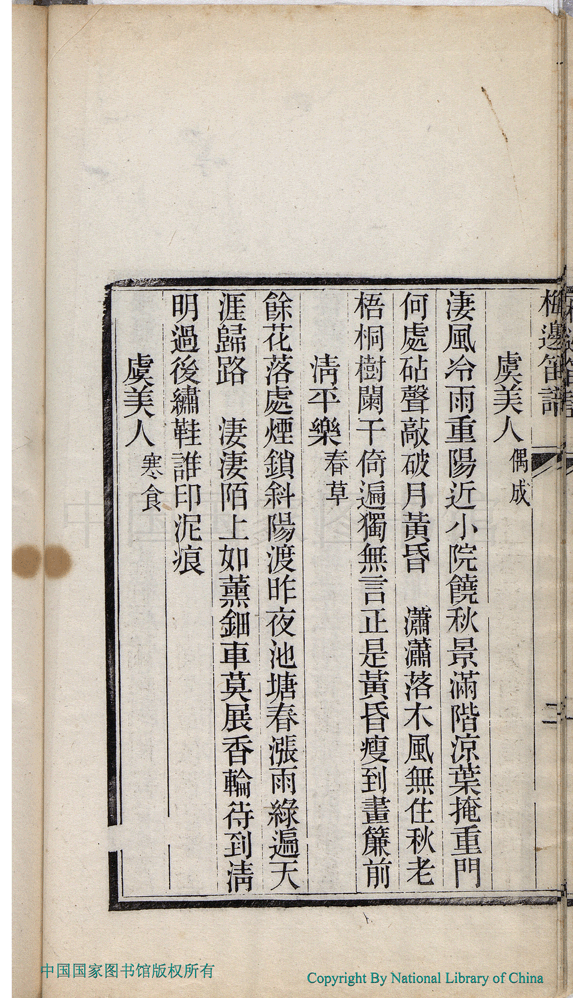 梅邊笛譜
二
虞美人 偶成
淒風冷雨重陽近小院饒秋景滿階凉葉掩重門
何處砧聲敲破月黃昏 瀟瀟落木風無住秋老
梧桐樹闌干倚遍獨無言正是黃昏瘦到畫簾前
清平樂 春草
餘花落處煙鎖斜陽渡昨夜池塘春漲雨綠遍天
涯歸路 淒淒陌上如薰鈿車莫展香輪待到清
明過後繡鞋誰印泥痕
虞美人 寒食
中国国家图书馆版权所有
Copyright By National Library of China